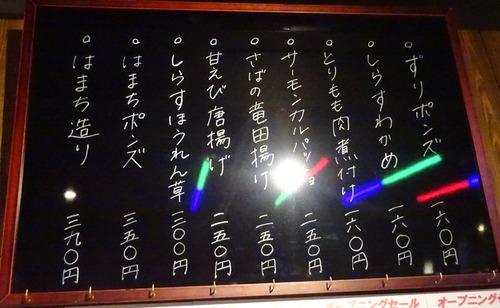 ○ずりポンズ 一六〇円
○しらすわかめ 一六〇円
○とりもも肉煮付け 一六〇円
○サーモンカルパッチョ 二五〇円
○さばの竜田揚げ 二五〇円
○甘えび唐揚げ 二五〇円
○しらすほうれん草 三〇〇円
○はまちポンズ 三五〇円
○はまち造り 三九〇円
オープニングセール オープニング